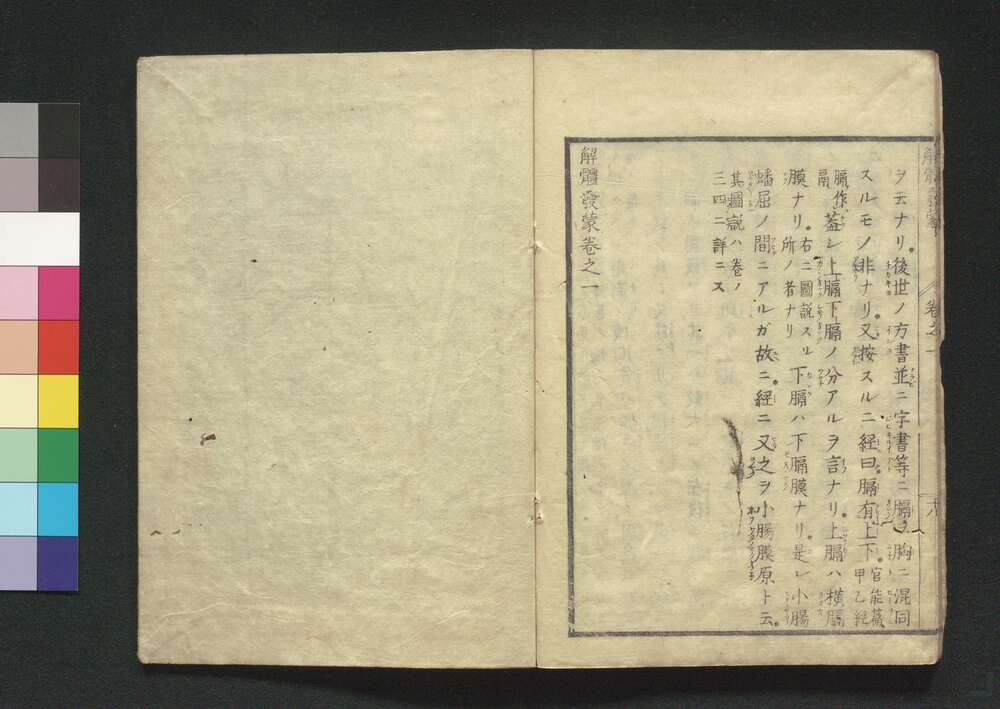 ヲ云ナリ。後世ノ方書並ニ字書等ニ膈ヲ胸ニ混同
スルモノ非ナリ。又按スルニ經曰。膈有上下。官能篇甲乙經
膈作鬲 蓋シ上膈下膈ノ分アルヲ言ナリ。上膈ハ横膈
膜ナリ。右ニ圖說スル所ノ者ナリ 下膈ハ下膈膜ナリ。是レ小腸
蟠屈ノ間ニアルガ故ニ。經ニ又之ヲ小腸膜原ト云。
其圖說ハ卷ノ
三四ニ詳ニス
解體發蒙卷之一
解體發蒙 卷之一